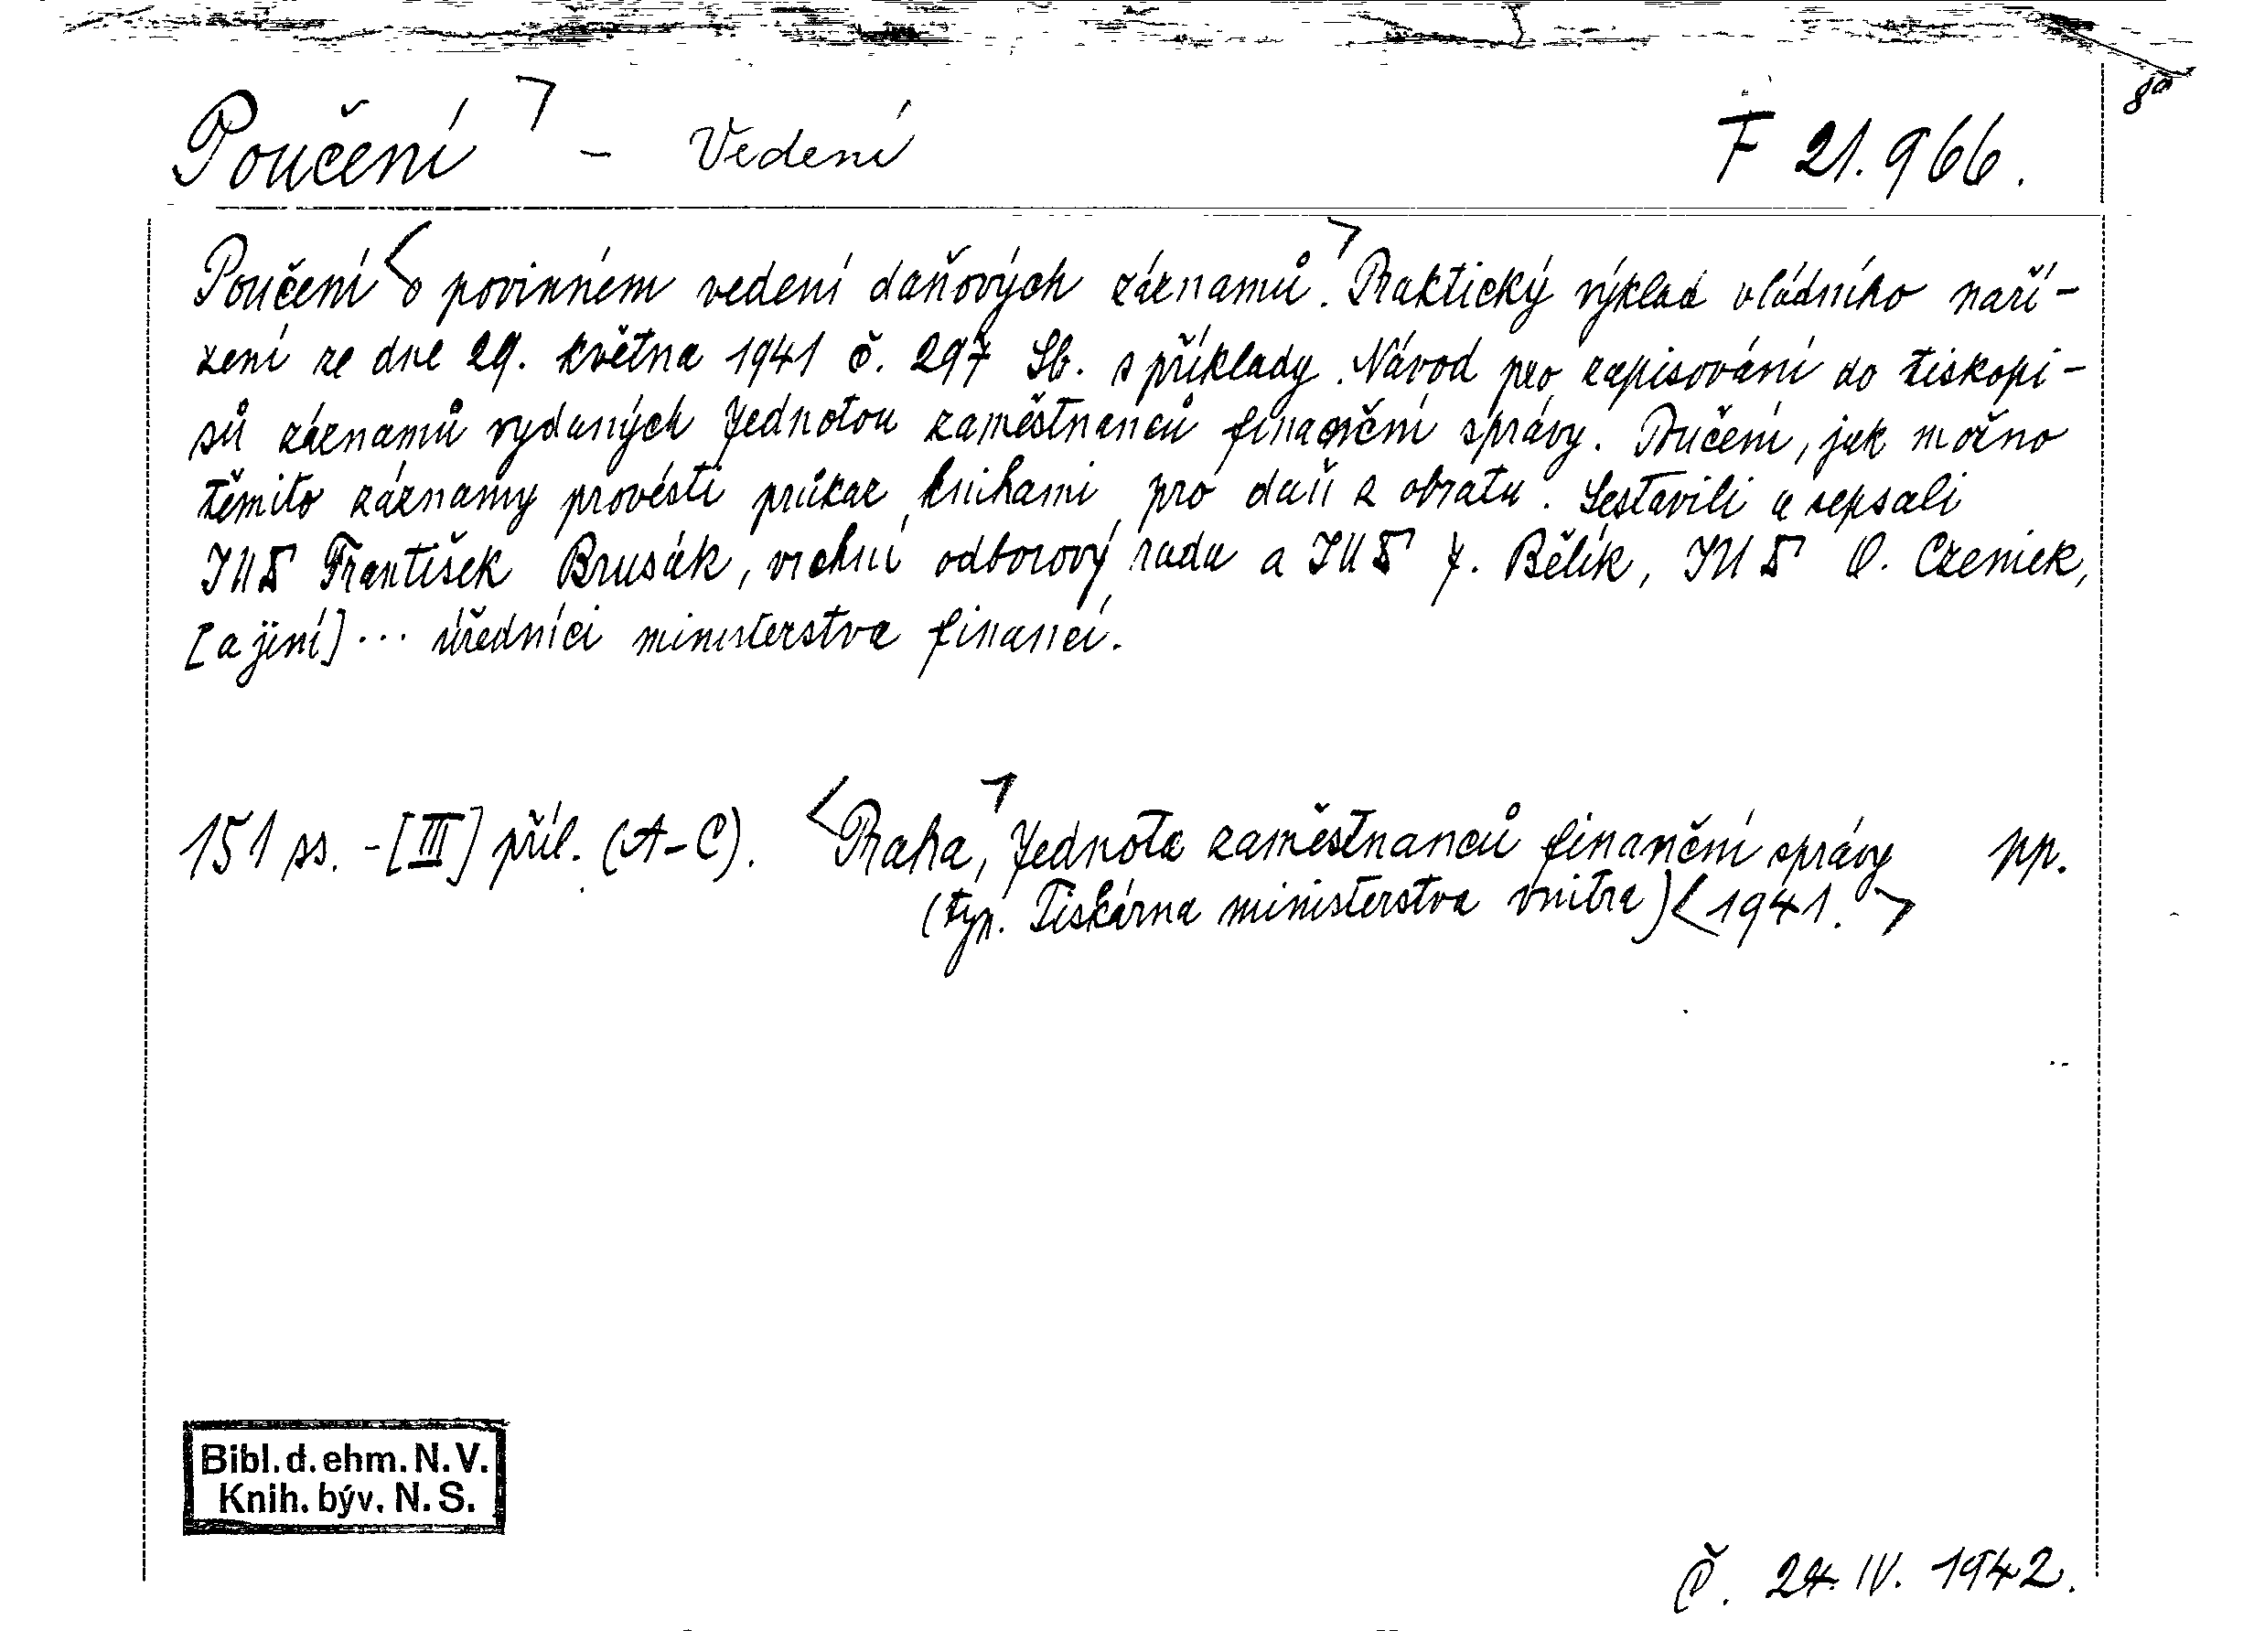 8°
Poučení - Vedení F 21.966.
Poučení o povinném vedení daňových záznamů. Praktický výklad vládního naří-
zení ze dne 29. května 1941 č. 297 Sb. s příklady. Návod pro zapisování do tiskopi-
sů záznamů vydaných Jednotou zaměstnanců finanční správy. Poučení, jak možno
těmito záznamy provésti průkaz knihami pro daň z obratu. Sestavili a sepsali
JUD František Brusák, vrchní odborový rada a JUD J. Bělík, JUD O. Czeniek,
[a jiní] ... úředníci ministerstva financí.
151 ss. -[III] příl. (A-C). Praha, Jednota zaměstnanců finanční správy pp.
(typ. Tiskárna ministerstva vnitra) 1941.
Bibl. d. ehm. N. V.
Knih. býv. N. S.
Č. 24. IV. 1942.